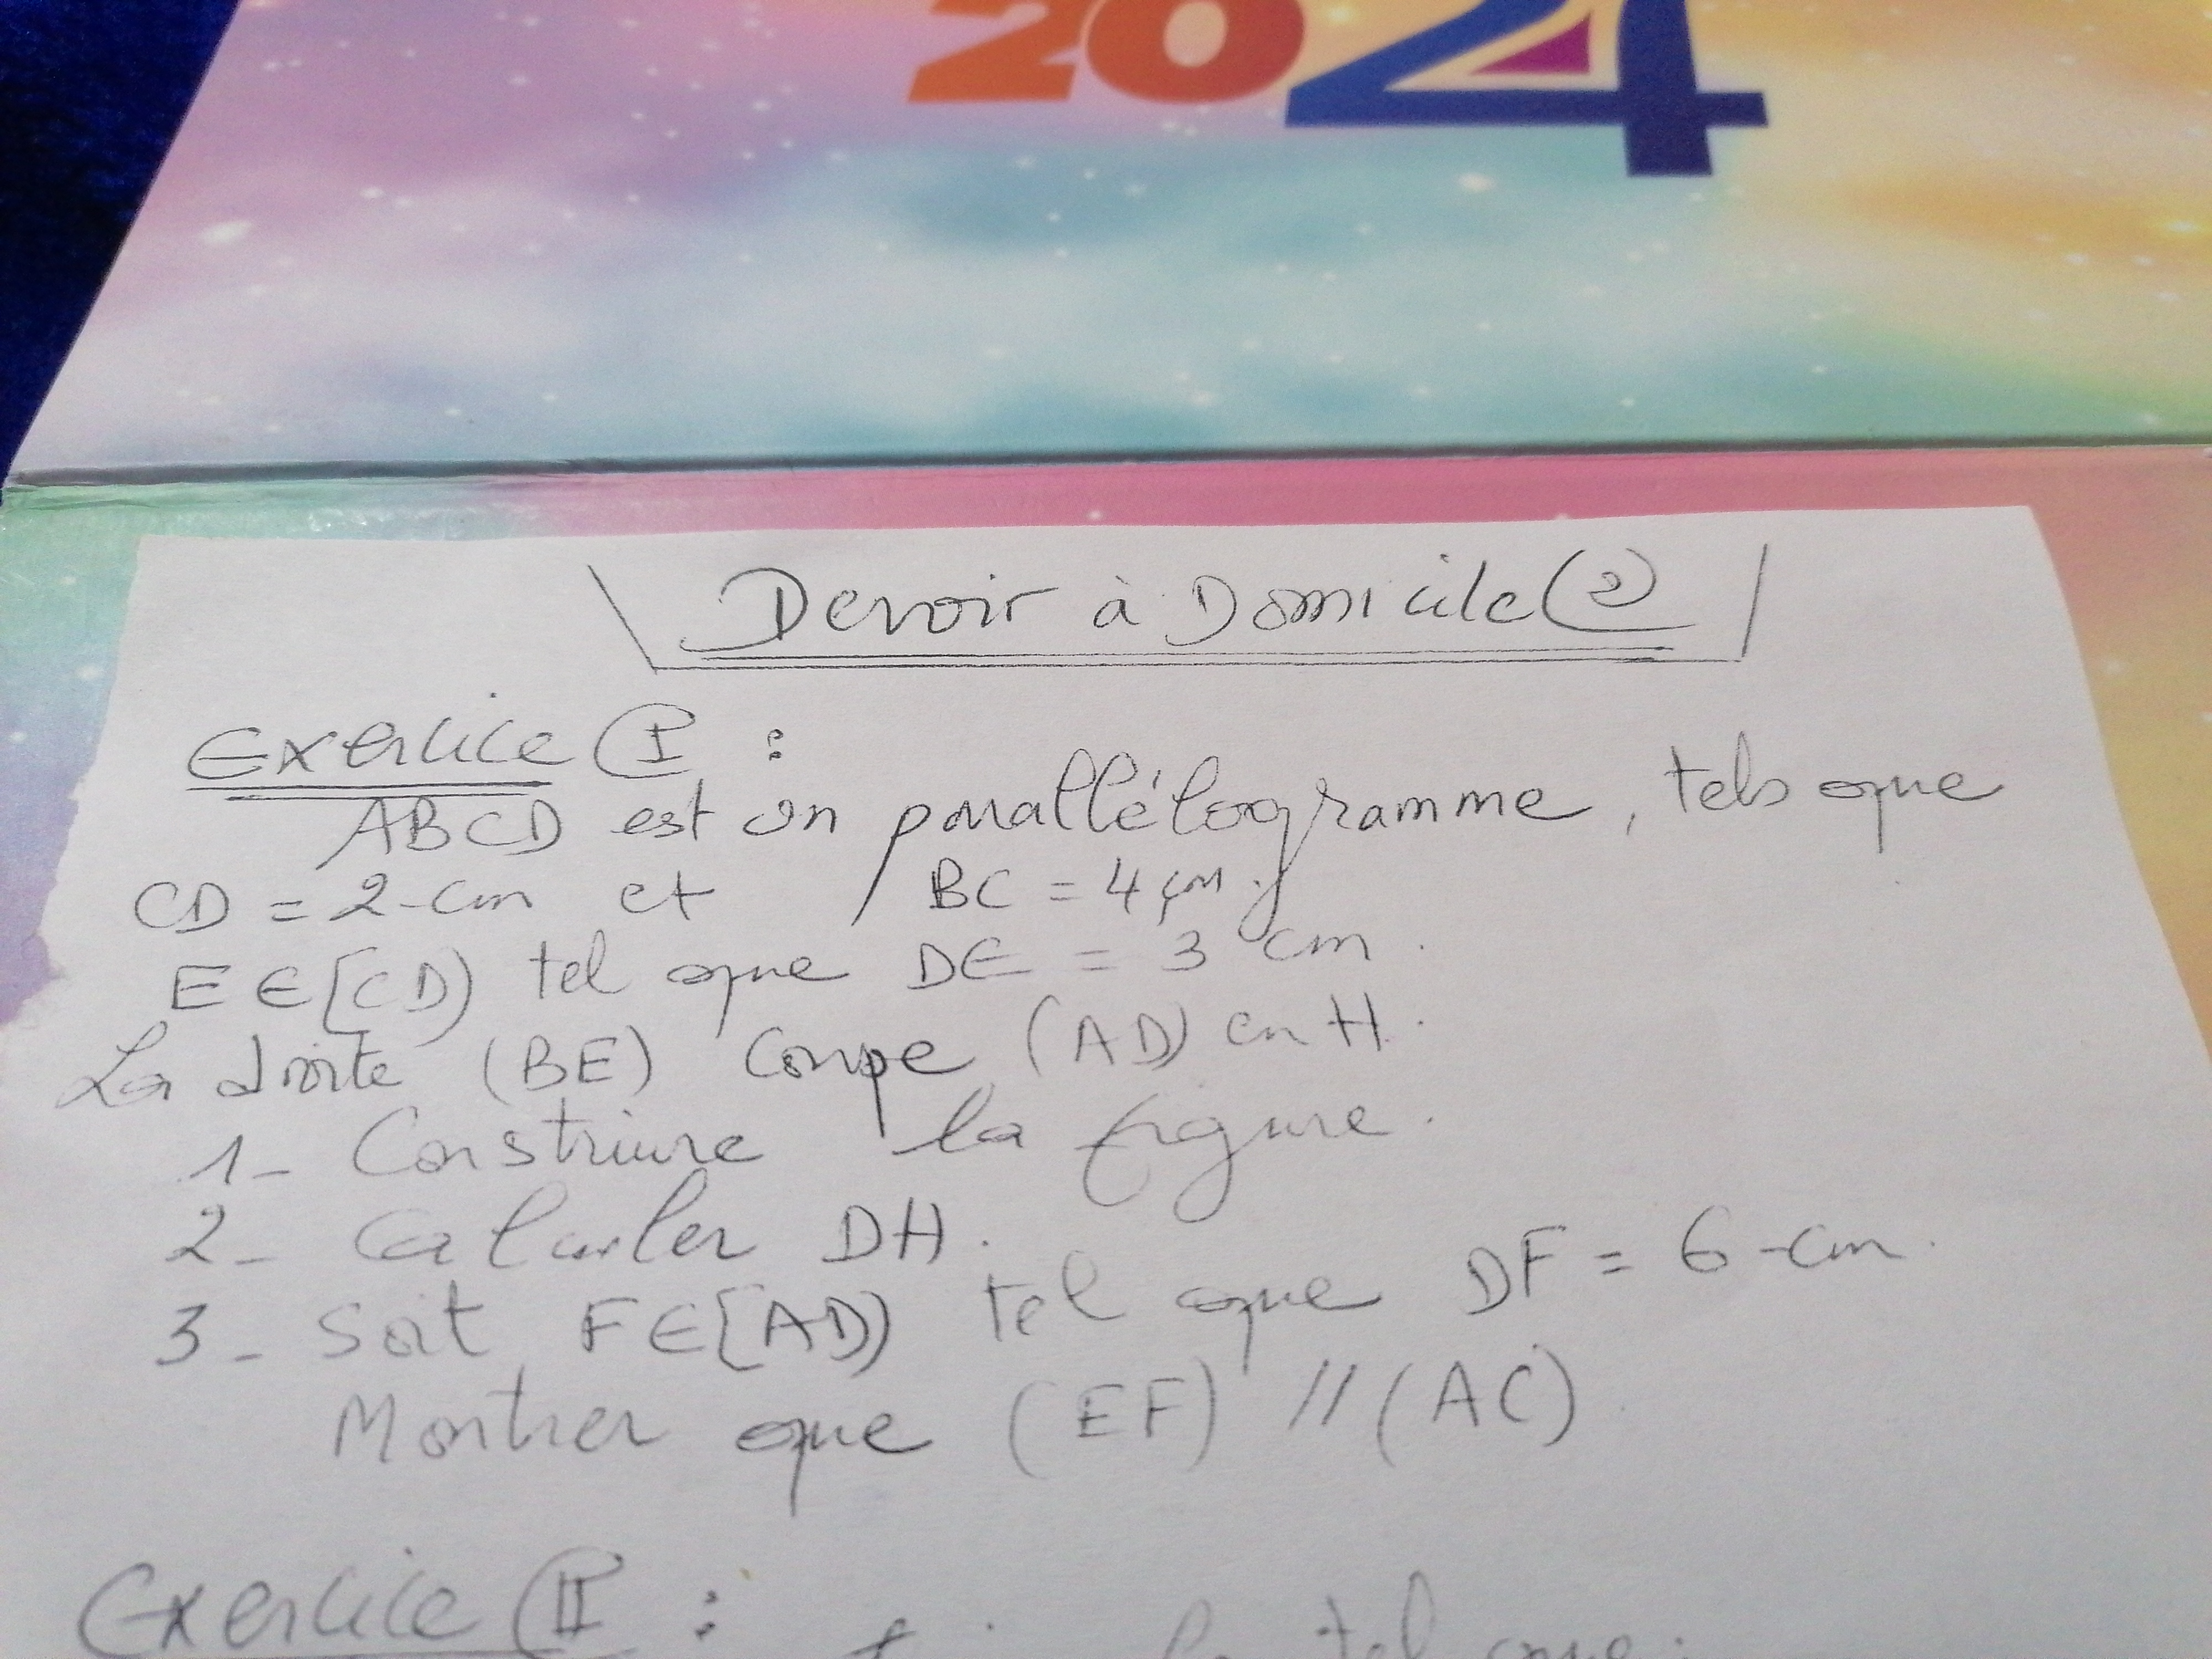 2024
Devoir à Domicile (2)
Exercice I :
ABCD est un parallélogramme, tels que
CD = 2 cm et BC = 4 cm.
E ∈ [CD) tel que DE = 3 cm.
La droite (BE) coupe (AD) en H.
1- Construire la figure.
2- Calculer DH.
3- Soit F ∈ [AD) tel que DF = 6 cm.
Montrer que (EF) // (AC)
Exercice II :
tel que :